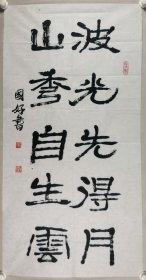 波光先得月
山秀自生雲
國好書